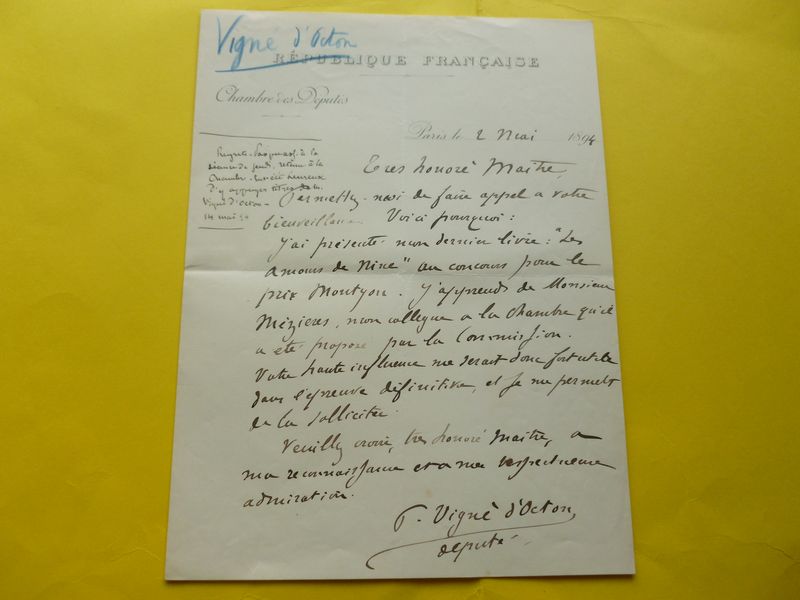 Vigné d'Octon
RÉPUBLIQUE FRANÇAISE
Chambre des Députés
Paris le 2 Mai 1894
Regrets. Pas pu ass. à la
séance de jeudi, retenu à la
Chambre.
d'y appuyer
Vigné d'Octon
14 mai 94
Très honoré Maître,
Permettez-moi de faire appel à votre
bienveillance. Voici pourquoi :
J'ai présenté mon dernier livre : "Les
Amours de Nine" au concours pour le
prix Montyon. J'apprends de Monsieur
Mézières, mon collègue à la Chambre qu'il
a été proposé par la Commission.
Votre haute influence me serait donc fort utile
dans l'épreuve définitive, et je me permets
de la solliciter.
Veuillez croire, très honoré Maître, à
ma reconnaissance et à ma respectueuse
admiration.
P. Vigné d'Octon,
député.